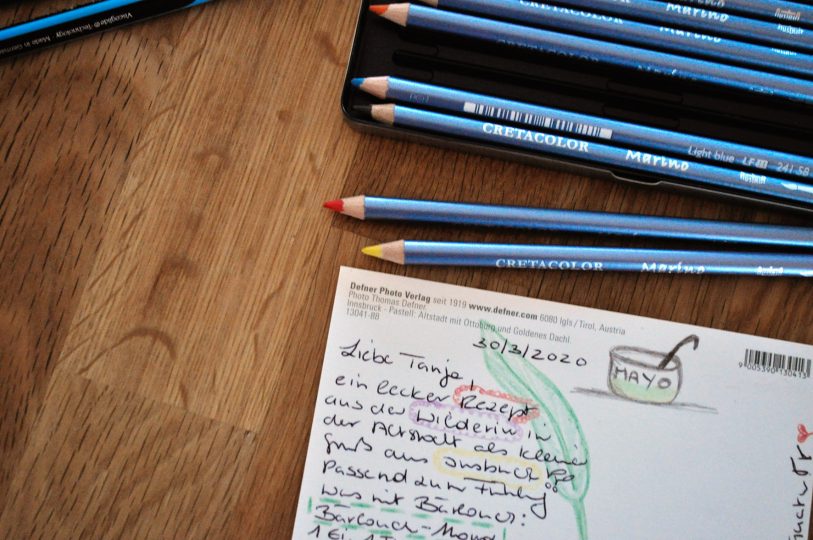 Viscoglide® technology Made in German
CRETACOLOR Marino
CRETACOLOR Marino Light blue LF 241 58
CRETACOLOR Marino
Defner Photo Verlag seit 1919 www.defner.com 6080 Igls / Tirol, Austria
Photo Thomas Defner,
Innsbruck - Pastell: Altstadt mit Ottoburg und Goldenes Dachl.
13041-88
30/3/2020
MAYO
9005390130413
Liebe Tanja!
ein lecker Rezept
aus der Wilderin in
der Altstadt als kleiner
Gruß aus Innsbruck
Passend zum Frühling
was mit Bärlauch:
Bärlauch-Mayo
1 Ei